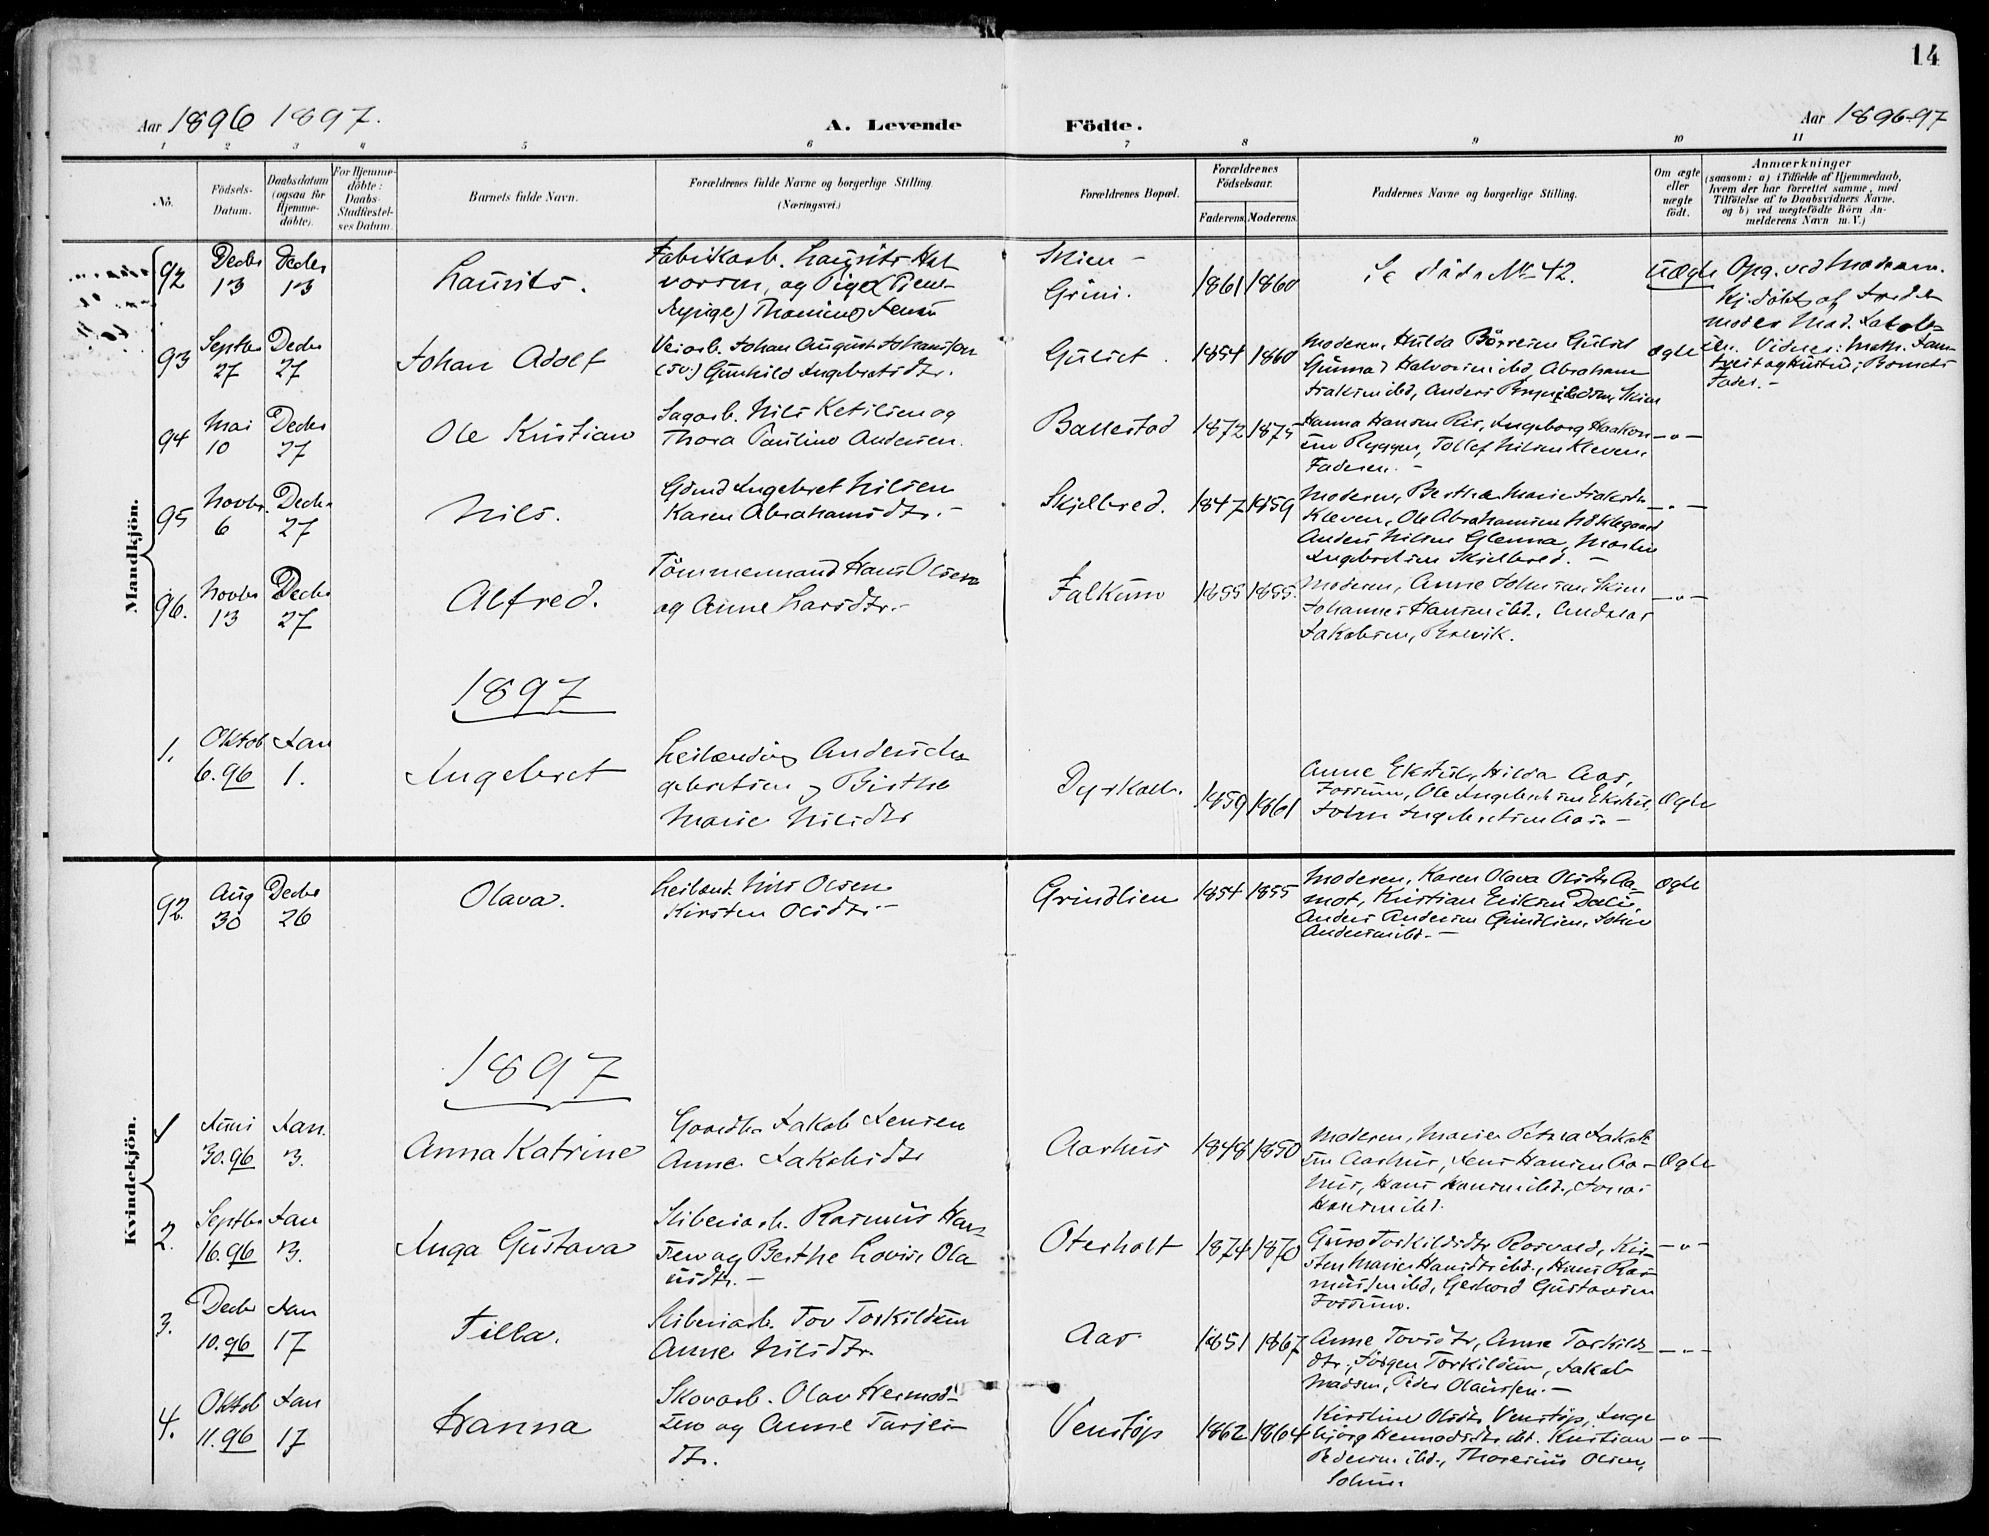 14
Aar 1896 1897.
A. Levende Födte.
Aar 1896-97
1 2 3 4 5 6 7 8 9 10 11
No.
Födsels-
Datum.
Daabsdatum
(ogsaa för
Hjemme-
döbte).
For Hjemme-
döbte:
Daabs-
Stadfæstel-
ses Datum.
Barnets fulde Navn.
Forældrenes fulde Navne og borgerlige Stilling.
(Næringsvei.)
Forældrenes Bopæl.
Forældrenes
Födselsaar.
Faderens. Moderens.
Faddernes Navne og borgerlige Stilling.
Om ægte
eller
uægte
født.
Anmærkninger
(saasom: a) i Tilfælde af Hjemmedaab,
hvem der har forrettet samme, med
Tilföielse af to Daabsvidners Navne,
og b) ved uægtefödte Börn An-
melderens Navn m. V.)
Mandkjön.
92 Decbr 13 Decbr 13
Laurits.
Fabrikarb. Laurits Hal
vorsen, og Pige
Skien -
Grini.
1861 1860
No 42.
Uægte
Opg. ved Moderen.
93 Septbr 27 Decbr 27
Johan Adolf
Veiarb. Johan August Johansson
Gunhild Ingebretsdtr.
Gulset.
1854 1860
Moderen, Hulda Börresen Gulset
Ægte
94 Mai 10 Decbr 27
Ole Kristian
Sagarb. Nils Ketilsen og
Thora Pauline Andersen.
Ballestad
1872 1875
Hanna Hansen Ris, Ingeborg Haakon
Tollef Nilsen Kleven,
Faderen. -
-"-
95 Novbr 6 Decbr 27
Nils.
Gdmd Ingebret Nilsen
Karen Abrahamsdtr. -
Skjelbred.
1847 1859
Moderen, Berthe Marie
Kleven, Ole Abrahamsen
Anders Nilsen Glenna, Martin
Ingebretsen Skjelbred. -
-"-
96. Novbr 13 Decbr 27
Alfred.
Tömmermand Hans Olsen
og Anne Larsdtr. -
Falkum
1855 1855.
Moderen, Anne Johnsen, Skien
Johannes Hansen ibd., Andreas
Jakobsen, Brevik.
-"-
1897
1. Oktob 6.96 Jan 1.
Ingebret
Leilænding Anders In
gebretsen og Birthe
Marie Nilsdtr
Dyrkoll.
1859 1861
Anne Ekstul, Hilda Aas,
Fossum, Ole Ingebretsen Ekstul,
John Ingebretsen Aas. -
Ægte
Kvindekjön.
92. Aug 30 Decbr 26
Olava.
Leilænd. Nils Olsen
Kirsten Olsdtr. -
Grindlien
1854 1855
Moderen, Karen Olava Olsdtr Aa-
mot, Kristian Eriksen Dale,
Anders Andersen Grindlien, Johan
Andersen ibd. -
Ægte
1897
1 Juni 30.96 Jan. 3.
Anna Katrine
Gaardbr Jakob Jensen
Anne Jakobsdtr
Aarhus
1848 1850
Moderen, Maren Petrea Jakob
sen Aarhus, Jens Hansen Aar-
hus, Hans Hansen ibd., Jonas
Hansen ibd.
Ægte
2. Septbr 16.96 Jan 3.
Inga Gustava
Sliberiarb. Rasmus Han-
sen og Berthe Lovise Ola
usdtr. -
Oterholt
1874 1870
Guro Torkildsdtr Rosvald, Kir-
sten Marie Hansdtr ibd., Hans Ras
mussen ibd., Gerhard Gustavsen
Fossum.
-"-
3. Decbr 10.96 Jan 17
Tilla.
Sliberiarb. Tov Torkildsen
Anne Nilsdtr.
Aas.
1851 1867
Anne Tovsdtr, Anne Torkilds-
dtr., Jörgen Torkildsen, Jakob
Madsen, Peder Olaussen. -
-"-
4. Oktob 11.96 Jan 17
Hanna
Skovarb. Olav Hermod-
sen og Anne Tarjeis
dtr.
Venstöp
1862 1864
Kirstine Olsdtr Venstöp, Inge
björg Hermodsdtr ibd. Kristian
Pedersen ibd., Thorsenius Olsen,
-"-